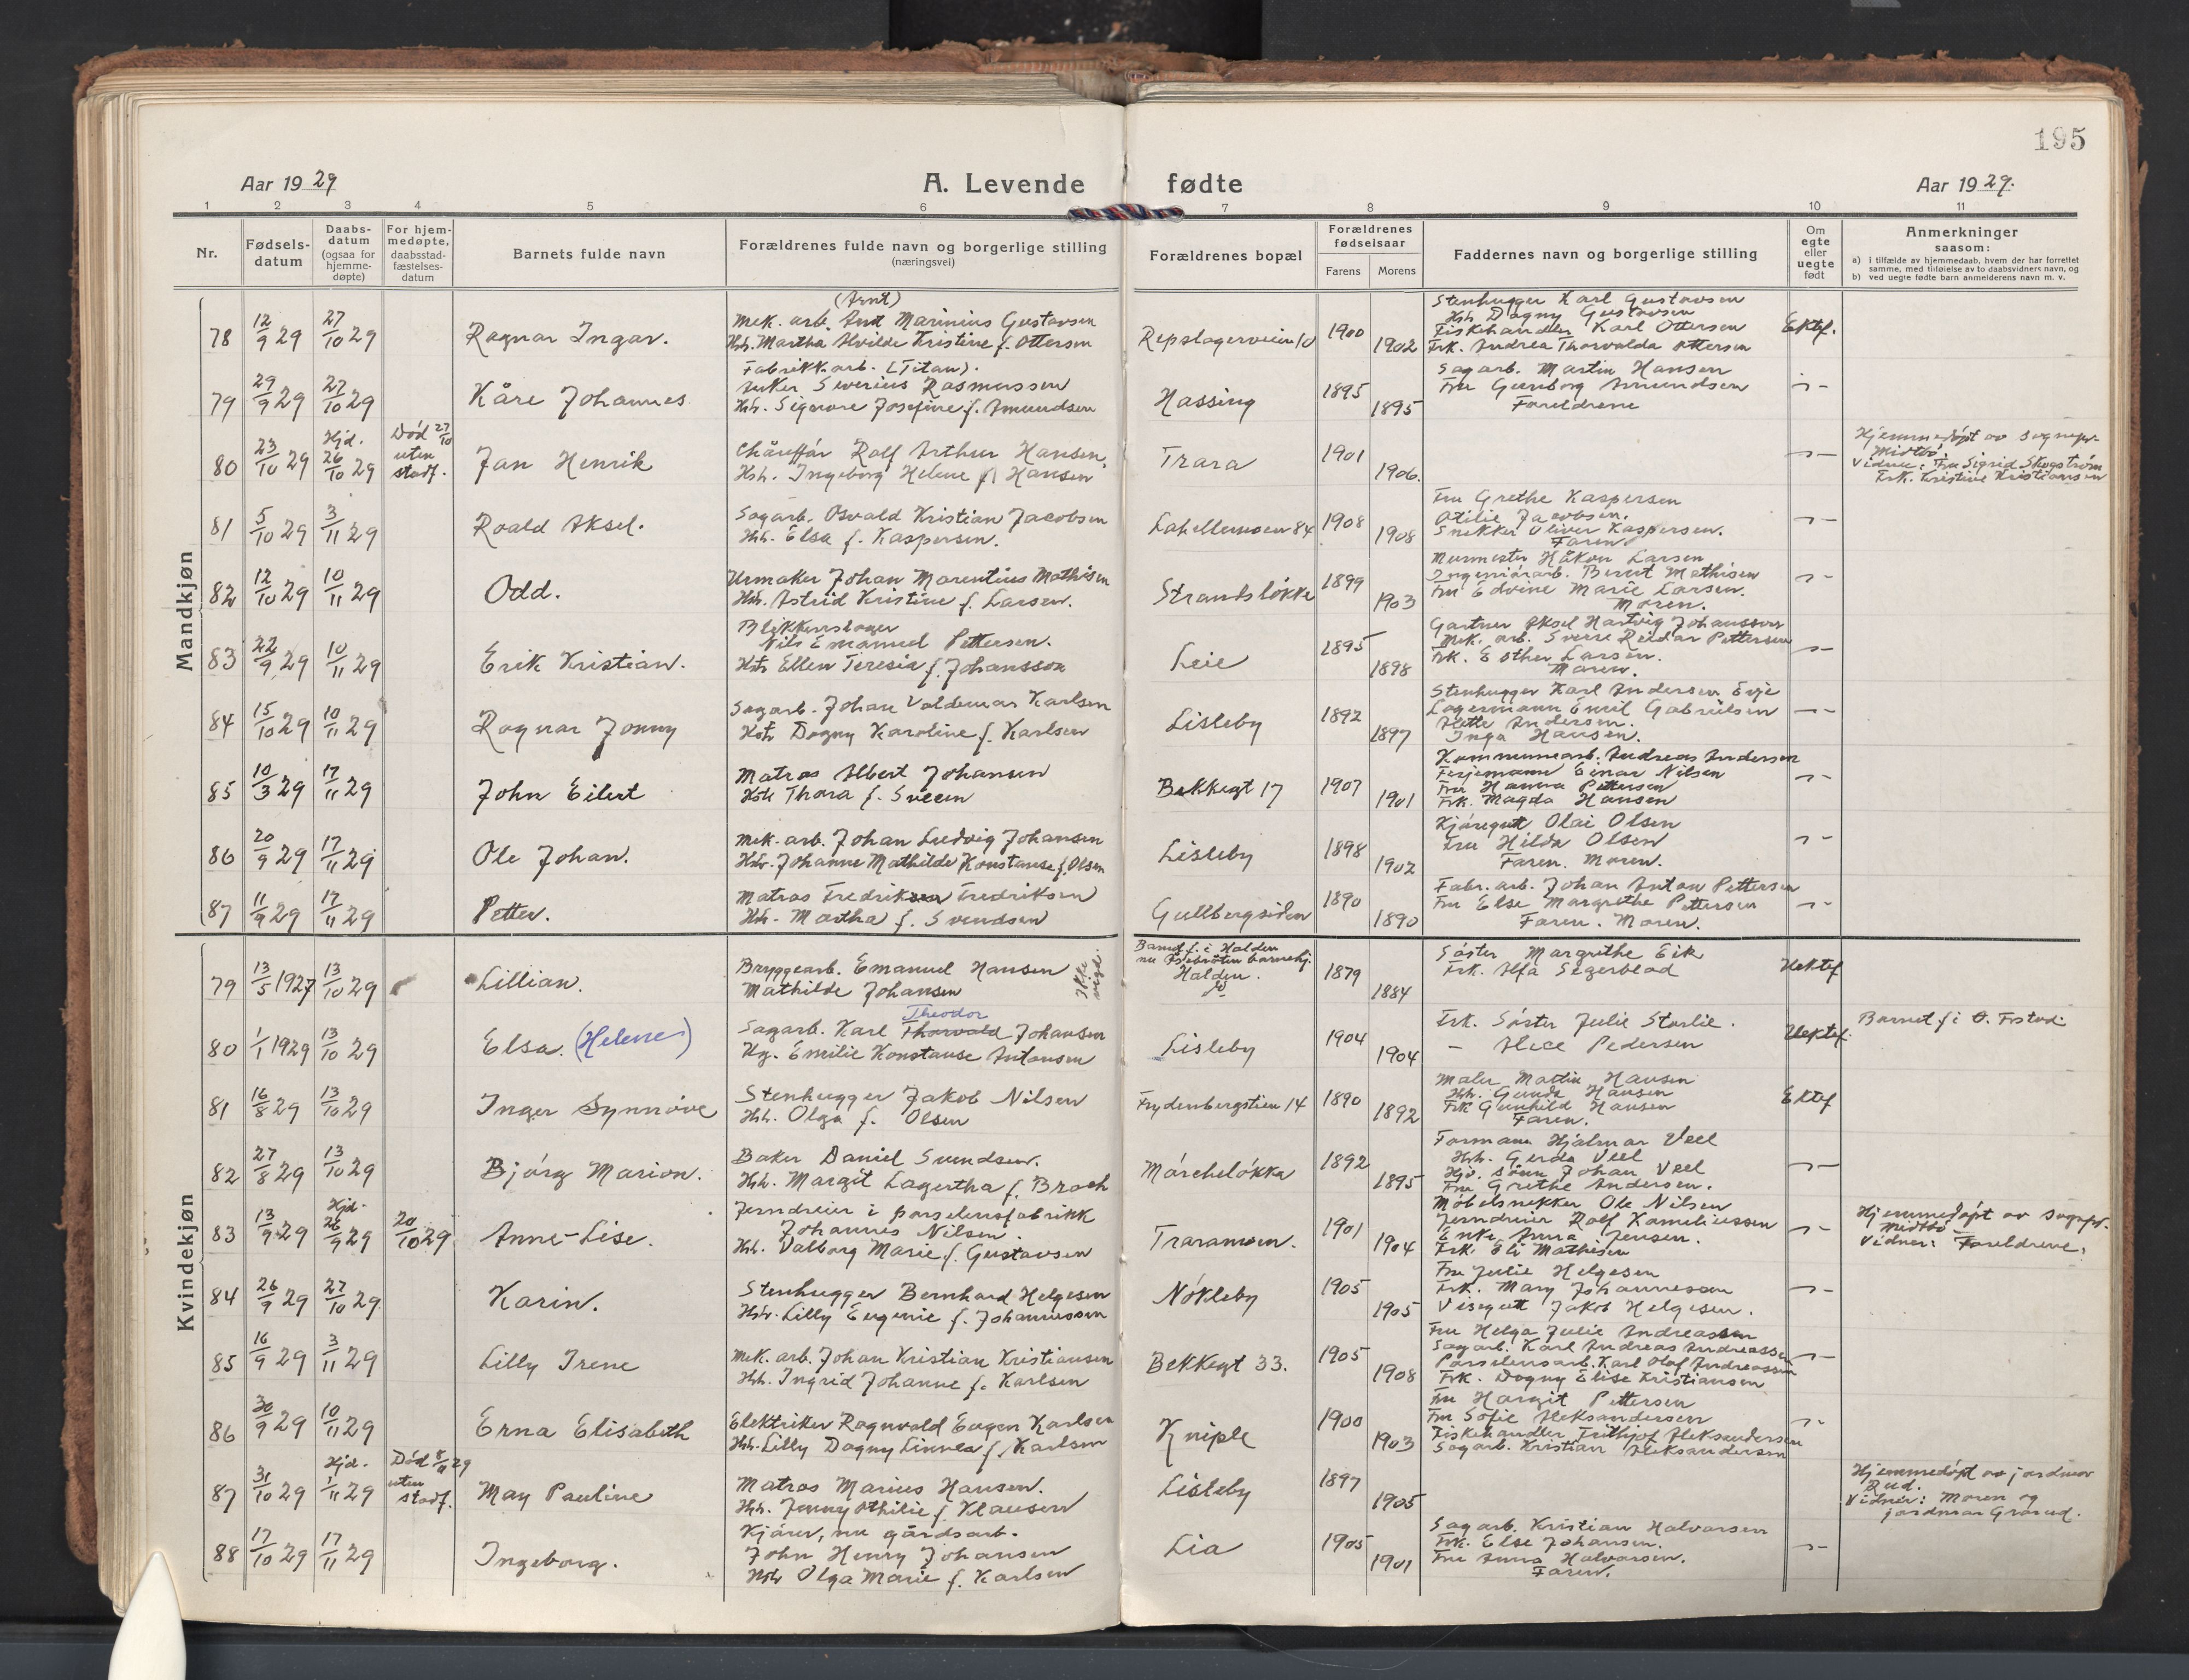 195
Aar 19 29
A. Levende fødte
Aar 19 29.
1 2 3 4 5 6 7 8 9 10 11
Nr.
Fødsels-
datum
Daabs-
datum
(ogsaa for
hjemme-
døpte)
For hjem-
medøpte,
daabsstad-
fæstelses-
datum
Barnets fulde navn
Forældrenes fulde navn og borgerlige stilling
(næringsvei)
Forældrenes bopæl
Forældrenes
fødselsaar
Farens Morens
Faddernes navn og borgerlige stilling
Om
egte
eller
uegte
født
Anmerkninger
saasom:
a) i tilfælde av hjemmedaab, hvem der har forrettet
samme, med tilføielse av to daabsvidners navn, og
b) ved uegte fødte barn anmelderens navn m. v.
Mandkjøn
78 12/9 29 27/10 29 Ragnar Ingar.
(Arnt)
Mek. arb. Arnt Marinius Gustavsen
Hstr. Martha Alvilde Kristine f. Ottersen
Repslagerveien 10 1900 1902
Stenhugger Karl Gustavsen
Hstr. Dagny Gustavsen
Fiskehandler Karl Ottersen
Frk. Andrea Thorvalda Ottersen
Ektef.
79 29/9 29 27/10 29 Kåre Johannes
Fabrikk.arb. (Titan).
Anker Severius Rasmussen
Hstr. Signore Josefine f. Amundsen
Hassing 1895 1895
Sagarb. Martin Hansen
Fru Gunborg Amundsen
Foreldrene
80 23/10 29 Hjd. 26/10 29 Død 27/10 uten stadf. Jan Henrik
Chåuffør Rolf Arthur Hansen
Hstr. Ingeborg Helene f. Hansen
Trara 1901 1906.
Hjemmedøpt av sognepr.
Midtbö.
Vidner: Fru Sigrid Skogstrøm
Frk. Kristine Kristiansen
81 5/10 29 3/11 29 Roald Aksel.
Sagarb. Osvald Kristian Jacobsen
Hstr. Elsa f. Kaspersen.
Lahellemoen 84 1908 1908
Fru Grethe Kaspersen
Otilie Jacobsen.
Snekker Oliver Kaspersen.
Faren
82 12/10 29 10/11 29 Odd.
Urmaker Johan Marentius Mathisen
Hstr. Astrid Kristine f. Larsen.
Strandsløkke 1899 1903
Murmester Håkon Larsen
Ingeniörarb. Bernt Mathisen
Fru Edvine Marie Larsen.
Moren.
83 22/9 29 10/11 29 Erik Kristian.
Blikkenslager
Nils Emanuel Pettersen.
Hstr Ellen Teresia f. Johansson
Leie 1895 1898
Gartner Aksel Hartvig Johansson
Mek. arb. Sverre Reidar Pettersen
Frk. Esther Larsen.
Moren.
84 15/10 29 10/11 29 Ragnar Jonny
Sagarb. Johan Valdemar Karlsen
Hstr Dagny Karoline f. Karlsen
Lisleby 1892 1897
Stenhugger Karl Andersen Evje
Lagermann Emil Gabrielsen
Alette Andersen.
Inga Hansen.
85 10/3 29 17/11 29 John Eilert
Matros Albert Johansen
Hstr Thora f. Sveen
Bekkegt 17 1907 1901
Kommunearb. Andreas Andersen
Ferjemann Einar Nilsen
Fru Hanna Pettersen
Frk. Magda Hansen
86 20/9 29 17/11 29 Ole Johan.
Mek. arb. Johan Ludvig Johansen
Hstr. Johanne Mathilde Konstanse f. Olsen
Lisleby 1898 1902
Kjöregutt Olai Olsen
Fru Hilda Olsen
Faren. Moren.
87 11/9 29 17/11 29 Petter.
Matros Fredrik Fredriksen
Hstr. Martha f. Svendsen
Gullbergsiden 1890 1890
Fabr. arb. Johan Anton Pettersen
Fru Else Margrethe Pettersen
Faren. Moren.
Kvindekjøn
79 13/5 1927 13/10 29 Lillian.
Bryggearb. Emanuel Hansen
Mathilde Johansen
Ikke viet.
Barnet f. i Halden
nu barnehj.
Halden.
1879 1884
Söster Margrethe Eik
Frk. Alfa Segerblad
Uektef
80 1/1 1929 13/10 29 Elsa. (Helene)
Theodor
Sagarb. Karl Thorvald Johansen
Ug. Emilie Konstanse Antonsen
Lisleby 1904 1904
Frk. Söster Julie Storlie.
— Alice Pedersen
Uektef.
Barnet f. i Ø. Frstad.
81 16/8 29 13/10 29 Inger Synnøve
Stenhugger Jakob Nilsen
Hstr. Olga f. Olsen
Frydenbergstien 14 1890 1892
Maler Martin Hansen
Hstr. Gunda Hansen
Frk Gunhild Hansen
Faren.
Ektef
82 27/8 29 13/10 29 Bjørg Marion.
Baker Daniel Svendsen.
Hstr. Margit Lagertha f. Broch
Mórcheløkka 1892 1895
Formann Hjalmar Vell
Hstr. Gerda Vell
Hjv. sönn Johan Vell
Fru Grethe Andersen.
83 13/9 29 Hjd. 26/9 29 20/10 29 Anne-Lise.
Jerndreier i porselensfabrikk
Johannes Nilsen
Hstr. Valborg Marie f. Gustavsen
Traramoen. 1901 1904
Möbelsnekker Ole Nilsen
Jerndreier Rolf Kornelieussen
Enke Anna Jensen.
Frk. Eli Mathisen
Hjemmedøpt av sognepr.
Midtbö
Vidner: Foreldrene.
84 26/9 29 27/10 29 Karin.
Stenhugger Bernhard Helgesen
Hstr. Lilly Eugenie f. Johannessen
Nökleby 1905 1905
Fru Julie Helgesen
Frk. Mary Johannesson
Visegutt Jakob Helgesen.
85 16/9 29 3/11 29 Lilly Irene
Mek. arb. Johan Kristian Kristiansen
Hstr. Ingrid Johanne f. Karlsen
Bekkegt 33. 1905 1908
Fru Helga Julie Andreassen
Sagarb. Karl Andreas Andreassen
Porselensarb. Karl Olaf Andreassen
Frk. Dagny Elise Kristiansen
86 30/9 29 10/11 29 Erna Elisabeth
Elektriker Ragnvald Eugen Karlsen
Hstr. Lilly Dagny Linnea f. Karlsen
Kniple 1900 1903
Fru Margit Pettersen
Fru Sofie Aleksandersen
Fiskehandler Frithjof Aleksandersen
Sagarb. Kristian Aleksandersen
87 31/10 29 Hjd. 1/11 29 Død 8/11 29 uten stadf. May Pauline
Matros Marius Hansen.
Hstr. Jenny Othilie f. Klausen
Lisleby 1897 1905
Hjemmedøpt av jordmor
Rud.
Vidner: Moren og
jordmor Grorud.
88 17/10 29 17/11 29 Ingeborg.
Kjörer, nu gårdsarb.
John Henry Johansen
Hstr Olga Marie f. Karlsen
Lia 1905 1901
Sagarb. Kristian Halvorsen
Frk. Else Johansen.
Fru Anna Halvorsen.
Faren.